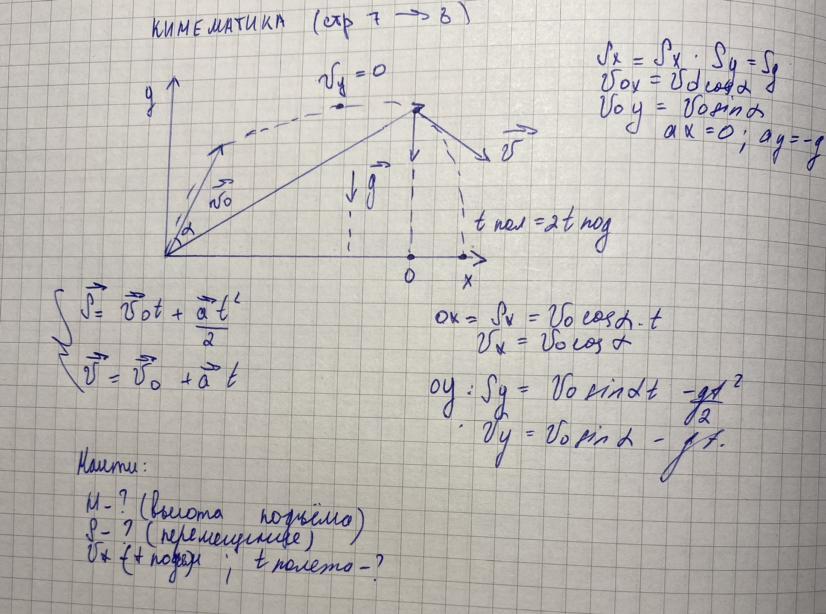 КИНЕМАТИКА (стр 7 → 8)
Sx = Sx . Sy = Sy
v0x = v0 cosα
v0y = v0 sinα
ax = 0 ; ay = -g
y
vy = 0
v⃗0
α
g⃗
v⃗
t пол = 2t под
0
x
S⃗ = v⃗0t + a⃗t²/2
v⃗ = v⃗0 + a⃗ t
ox = Sx = v0 cosα . t
vx = v0 cosα
oy : Sy = v0 sinαt - gt²/2
vy = v0 sinα - gt.
Найти:
H - ? (высота подъёма)
S - ? (перемещение)
; t полета - ?